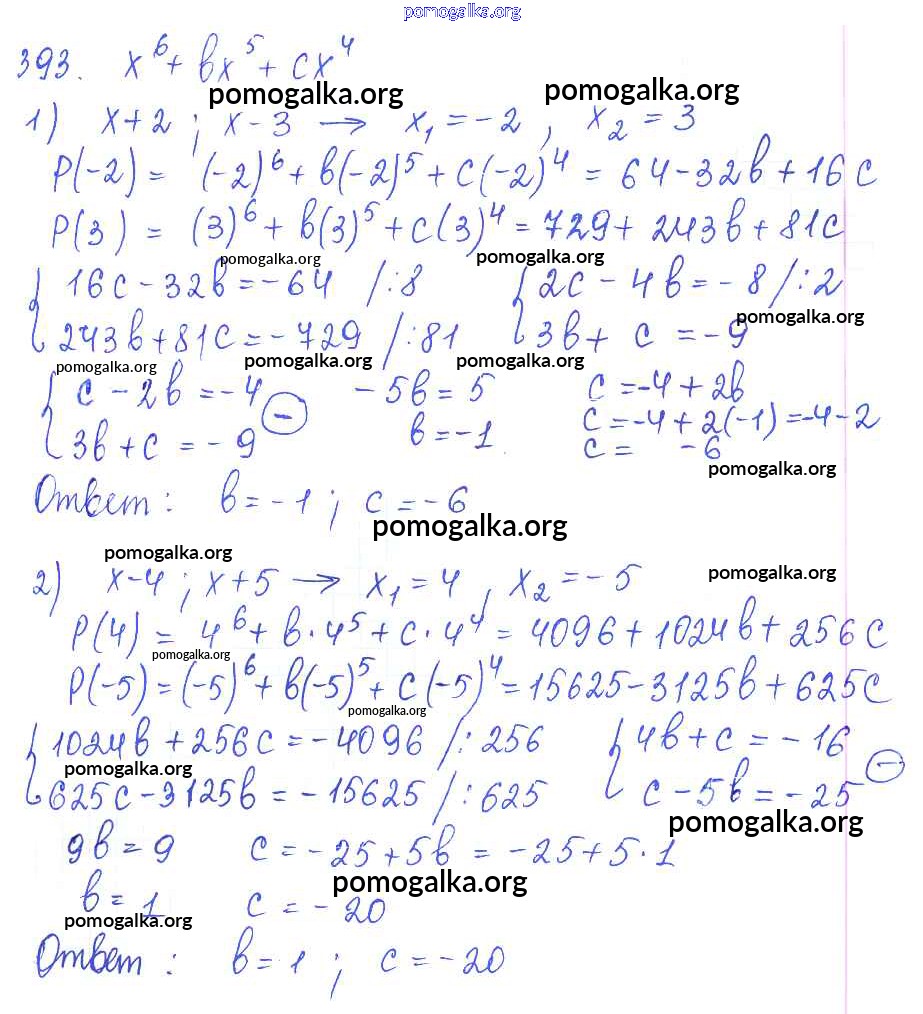 pomogalka.org
393. x⁶ + bx⁵ + cx⁴
pomogalka.org pomogalka.org
1) x+2 ; x-3 → x₁ = -2 , x₂ = 3
P(-2) = (-2)⁶ + b(-2)⁵ + c(-2)⁴ = 64 - 32b + 16c
P(3) = (3)⁶ + b(3)⁵ + c(3)⁴ = 729 + 243b + 81c
pomogalka.org pomogalka.org
{ 16c - 32b = -64 /:8 { 2c - 4b = -8 /:2
pomogalka.org
243b + 81c = -729 /:81 3b + c = -9
pomogalka.org pomogalka.org pomogalka.org
{ c - 2b = -4 - -5b = 5 c = -4 + 2b
3b + c = -9 b = -1 c = -4 + 2(-1) = -4 - 2
c = -6
pomogalka.org
Ответ: b = -1 ; c = -6
pomogalka.org
pomogalka.org pomogalka.org
2) x-4 ; x+5 → x₁ = 4 , x₂ = -5
P(4) = 4⁶ + b·4⁵ + c·4⁴ = 4096 + 1024b + 256c
pomogalka.org
P(-5) = (-5)⁶ + b(-5)⁵ + c(-5)⁴ = 15625 - 3125b + 625c
pomogalka.org
{ 1024b + 256c = -4096 /:256 { 4b + c = -16 -
pomogalka.org
625c - 3125b = -15625 /:625 c - 5b = -25
pomogalka.org
9b = 9 c = -25 + 5b = -25 + 5·1
pomogalka.org
b = 1 c = -20
pomogalka.org
Ответ: b = 1 ; c = -20